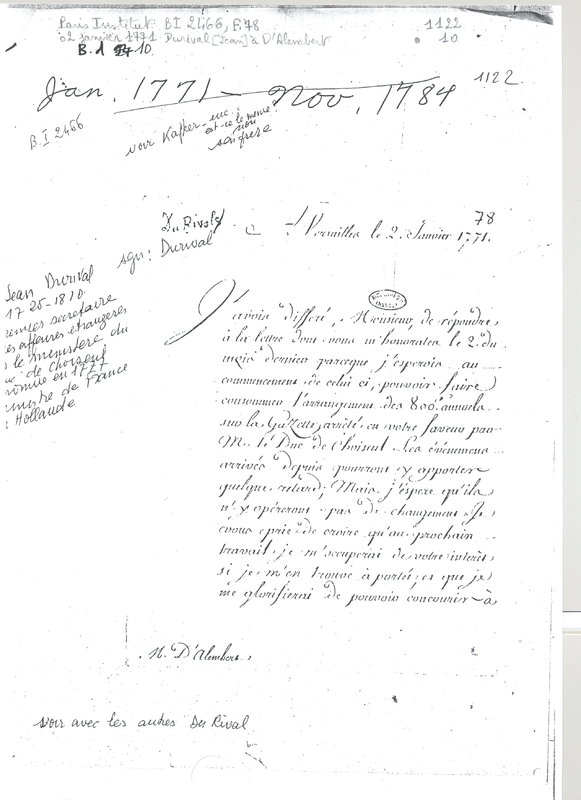 Paris Institut BI 2466, F.78
02 janvier 1771 Durival [Jean] à D'Alembert
B. 1 10
1122
10
Jan. 1771 – Nov. 1784
1122
B.I 2466
voir Kafker-enc :
est-ce le même
son frère
78
Du Rival
A Versailles le 2. Janvier 1771.
sgn: Durival
Jean Durival
1725-1810
premier secrétaire
des affaires étrangères
le ministère du
de Choiseul
nommé en 1777
ministre de France
Hollande
J'avois différé, Monsieur, de répondre
à la lettre dont vous m'honorates le 2. du
mois dernier parceque j'esperois au
commencement de celui ci, pouvoir faire
consommer l'arrangement des 800.# annuels
sur la Gazette, arrêté en votre faveur par
M. le Duc de Choiseul. Les événemens
arrivés depuis pourront y apporter
quelque retard; Mais j'espere qu'ils
n'y opéreront pas de changement. Je
vous prie de croire qu'au prochain
travail je m'occuperai de votre intérêt
si je m'en trouve à portée, et que je
me glorifierai de pouvoir concourir à
M. D'Alembert
voir avec les autres Du Rival